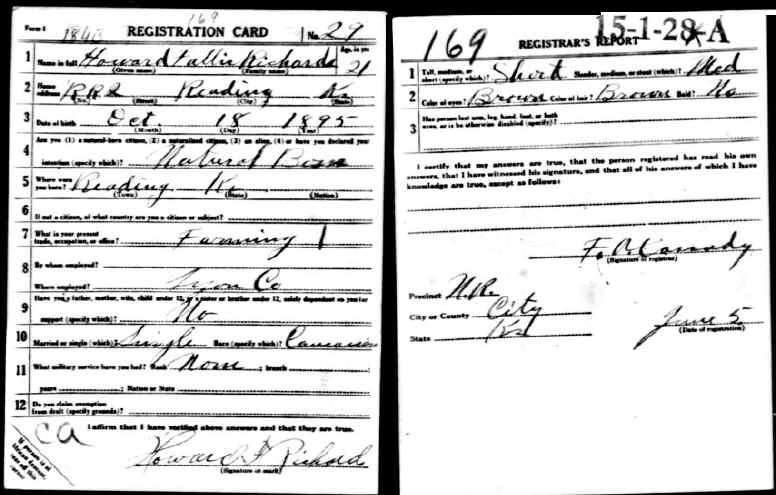 Form 1
169
REGISTRATION CARD
No. 29
1 Name in full Howard Richards
(Given name) (Family name)
Age, in yrs
21
2 Home address RR2 Reading Ks
(No.) (Street) (City) (State)
3 Date of birth Oct. 18 1895
(Month) (Day) (Year)
Are you (1) a natural-born citizen, (2) a naturalized citizen, (3) an alien, (4) or have you declared your
4 intention (specify which)? Natural Born
5 Where were you born? Reading Ks
(Town) (State) (Nation)
6 If not a citizen, of what country are you a citizen or subject?
7 What is your present trade, occupation, or office? Farming
8 By whom employed?
Where employed? Lyon Co
9 Have you a father, mother, wife, child under 12, or a sister or brother under 12, solely dependent on you for
support (specify which)? No
10 Married or single (which)? Single Race (specify which)? Caucasian
11 What military service have you had? Rank None ; branch
years ; Nation or State
12 Do you claim exemption
from draft (specify grounds)?
I affirm that I have verified above answers and that they are true.
Howard F Richard
(Signature or mark)
15-1-28-A
169
REGISTRAR'S REPORT
1 Tall, medium, or short (specify which)? Short Slender, medium, or stout (which)? Med
2 Color of eyes? Brown Color of hair? Brown Bald? No
3 Has person lost arm, leg, hand, foot, or both
eyes, or is he otherwise disabled (specify)?
I certify that my answers are true, that the person registered has read his own
answers, that I have witnessed his signature, and that all of his answers of which I have
knowledge are true, except as follows:
(Signature of registrar)
Precinct
City or County City
State Ks
June 5
(Date of registration)